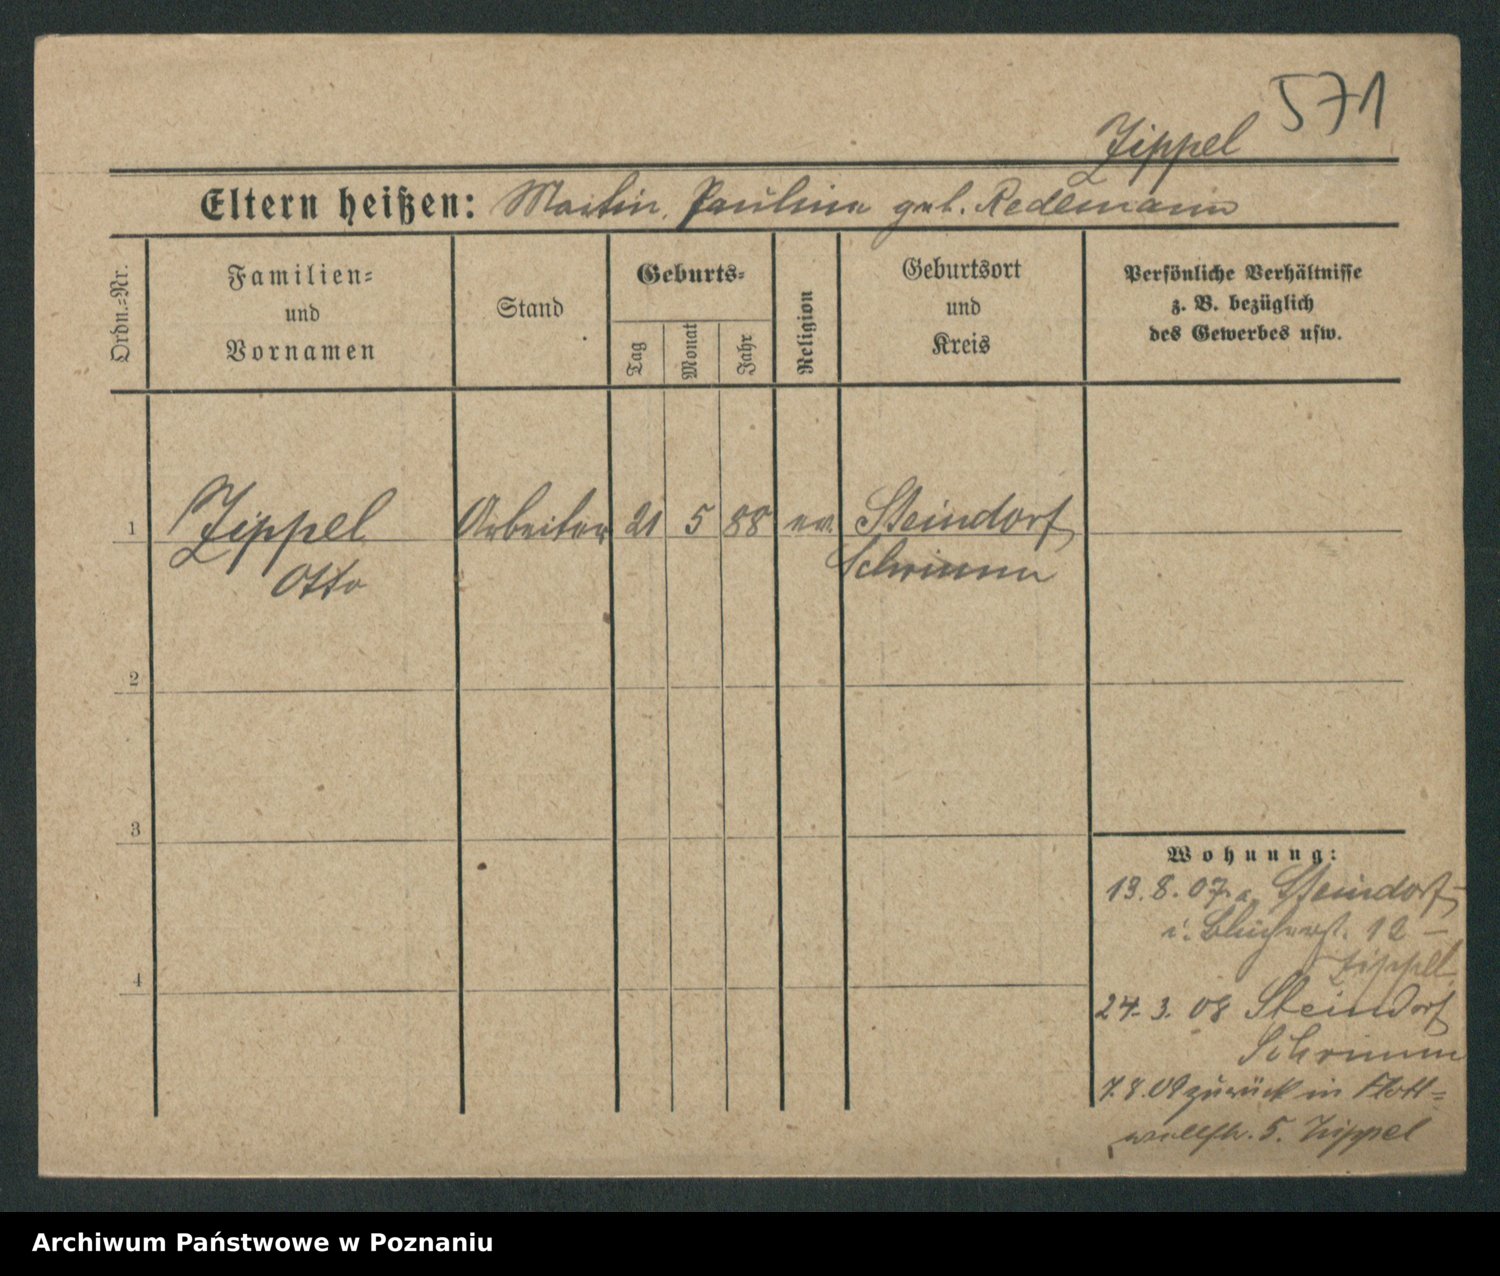 571
Zippel
Eltern heißen: Martin, Paulina geb. Redemann
Ordn.=Nr.
Familien=
und
Vornamen
Stand
Geburts=
Tag
Monat
Jahr
Religion
Geburtsort
und
Kreis
Persönliche Verhältnisse
z. B. bezüglich
des Gewerbes usw.
1 Zippel Arbeiter 21 5 88 ev. Steindorf
Otto Schrimm
2
3
4
Wohnung:
13. 8. 07. a. Steindorf
i. Blücherst. 12 –
Zippel
24. 3. 08 Steindorf
Schrimm
7.8.09 zurück in Flott=
wellstr. 5. Zippel
Archiwum Państwowe w Poznaniu